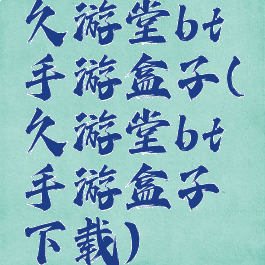 久游堂bt
手游盒子(
久游堂bt
手游盒子
下载)